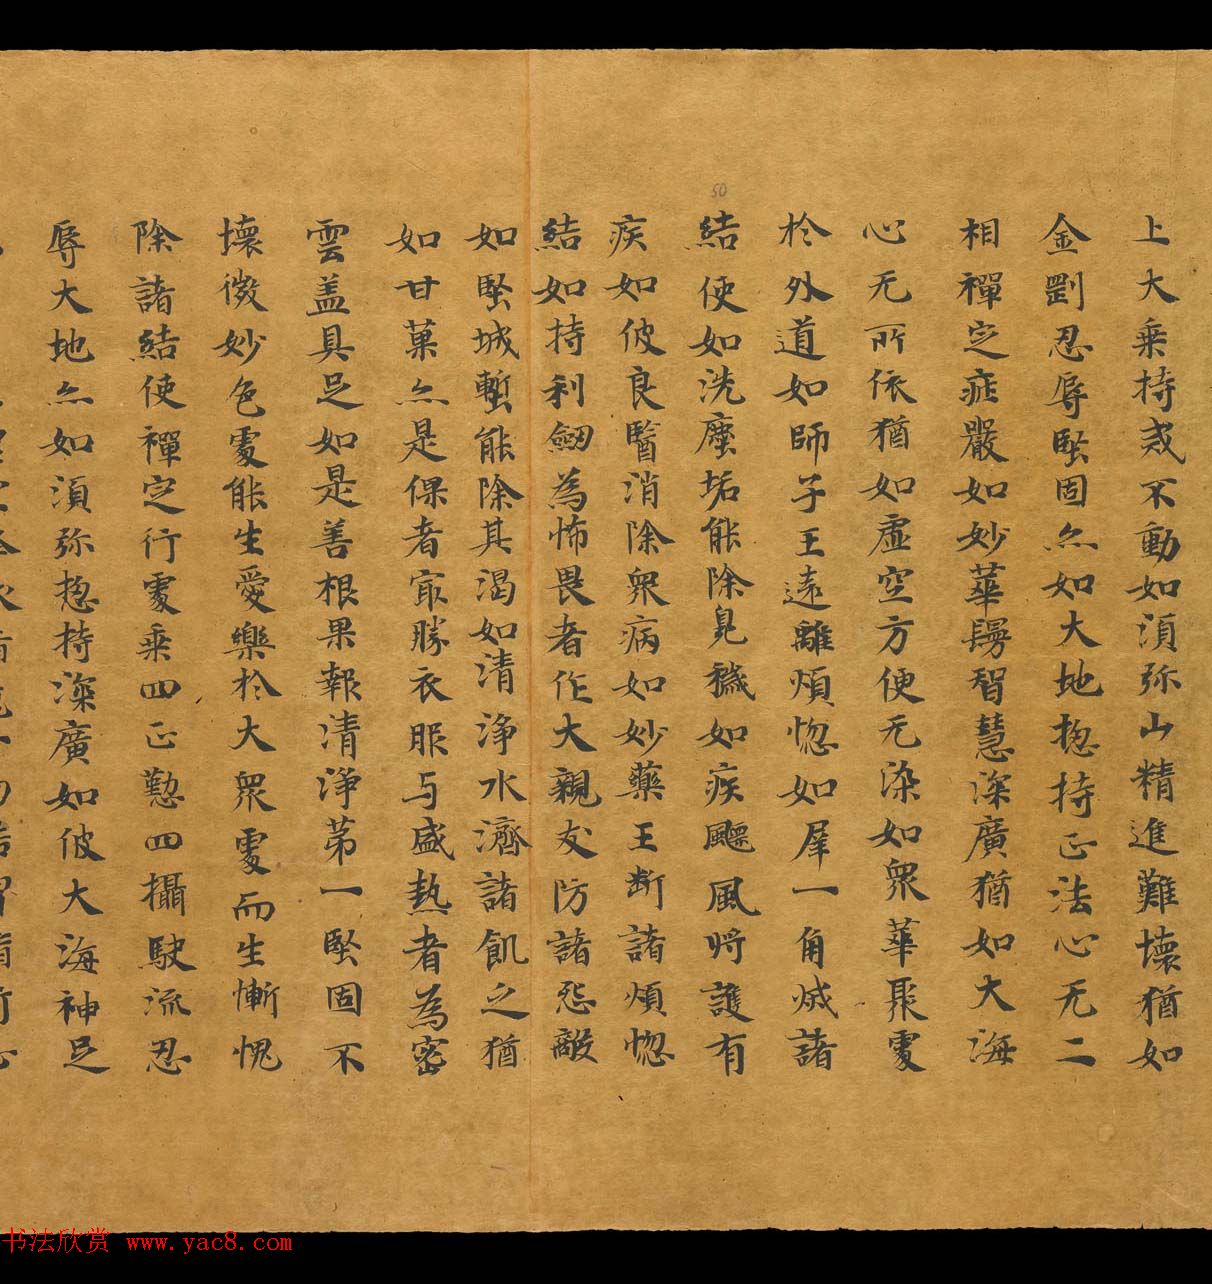 上大乘持戒不動如湏弥山精進難壞猶如
金剛忍辱堅固亦如大地揔持正法心无二
相禪定莊嚴如妙華鬘智慧深廣猶如大海
心无所依猶如虛空方便无染如衆華聚處
於外道如師子王遠離煩惱如犀一角滅諸
結使如洗塵垢能除臭穢如疾飈風將護有
疾如彼良醫消除衆病如妙藥王断諸煩惱
結如持利劒為怖畏者作大親友防諸惡敵
如堅城塹能除其渴如清淨水濟諸飢之猶
如甘菓亦是倮者冣勝衣服与盛熱者為密
雲盖具足如是善根果報清淨苐一堅固不
壞微妙色處能生愛樂於大衆處而生慚愧
除諸結使禪定行處乘四正懃四攝駛流忍
辱大地亦如湏弥揔持深廣如彼大海神足
50
书法欣赏 www.yac8.com